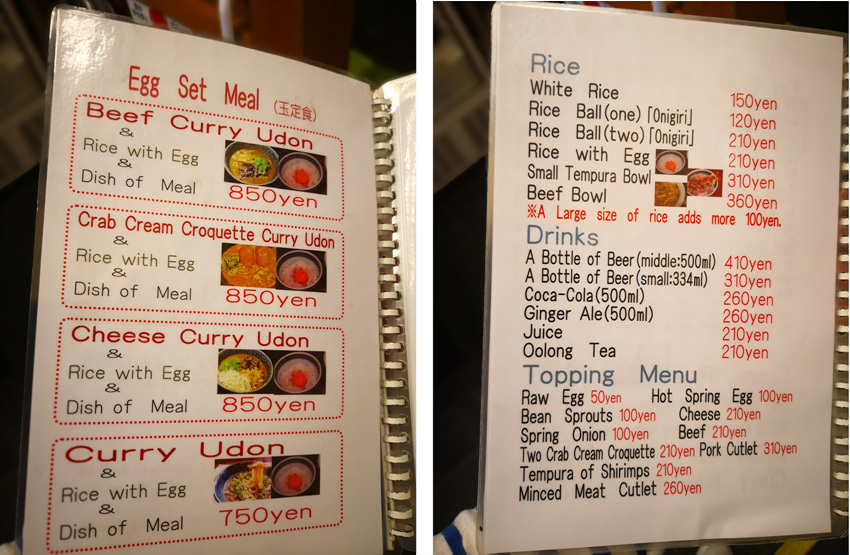 Egg Set Meal (玉定食)
Beef Curry Udon
&
Rice with Egg
&
Dish of Meal
850yen
Crab Cream Croquette Curry Udon
&
Rice with Egg
&
Dish of Meal
850yen
Cheese Curry Udon
&
Rice with Egg
&
Dish of Meal
850yen
Curry Udon
&
Rice with Egg
&
Dish of Meal
750yen
Rice
White Rice 150yen
Rice Ball(one)「Onigiri」 120yen
Rice Ball(two)「Onigiri」 210yen
Rice with Egg 210yen
Small Tempura Bowl 310yen
Beef Bowl 360yen
※A Large size of rice adds more 100yen.
Drinks
A Bottle of Beer(middle:500ml) 410yen
A Bottle of Beer(small:334ml) 310yen
Coca-Cola(500ml) 260yen
Ginger Ale(500ml) 260yen
Juice 210yen
Oolong Tea 210yen
Topping Menu
Raw Egg 50yen Hot Spring Egg 100yen
Bean Sprouts 100yen Cheese 210yen
Spring Onion 100yen Beef 210yen
Two Crab Cream Croquette 210yen Pork Cutlet 310yen
Tempura of Shirimps 210yen
Minced Meat Cutlet 260yen